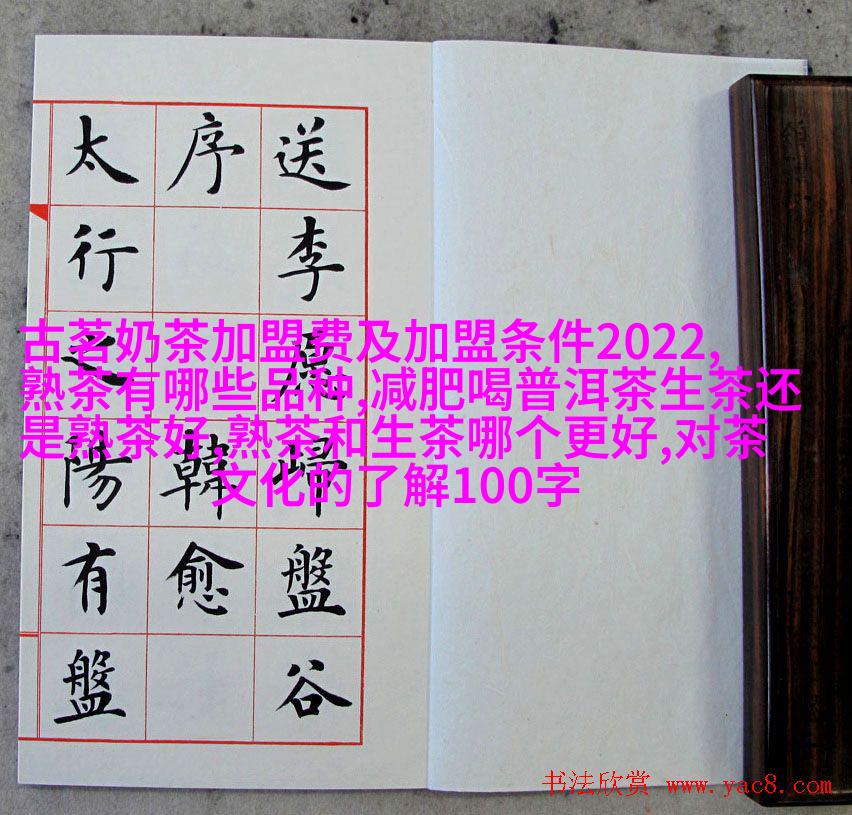 送李愿歸盤谷
序 韓愈
太行之陽有盤
古茗奶茶加盟费及加盟条件2022,
熟茶有哪些品种,减肥喝普洱茶生茶还
是熟茶好,熟茶和生茶哪个更好,对茶
文化的了解100字
书法欣赏 www.yac8.com